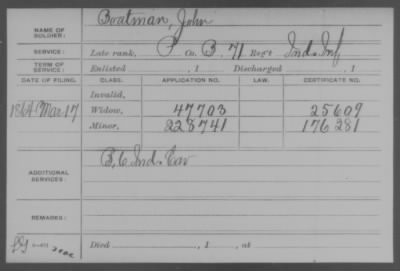 NAME OF SOLDIER: Boatman, John
SERVICE: Late rank, P Co. B, 71 Reg't Ind. Inf
TERM OF SERVICE: Enlisted , 1 Discharged , 1
DATE OF FILING. CLASS. APPLICATION NO. LAW. CERTIFICATE NO.
Invalid,
1864 Mar 17 Widow, 47703 25609
Minor, 223741 176281
ADDITIONAL SERVICES: B, 6 Ind. Cav
REMARKS:
Died , 1 , at